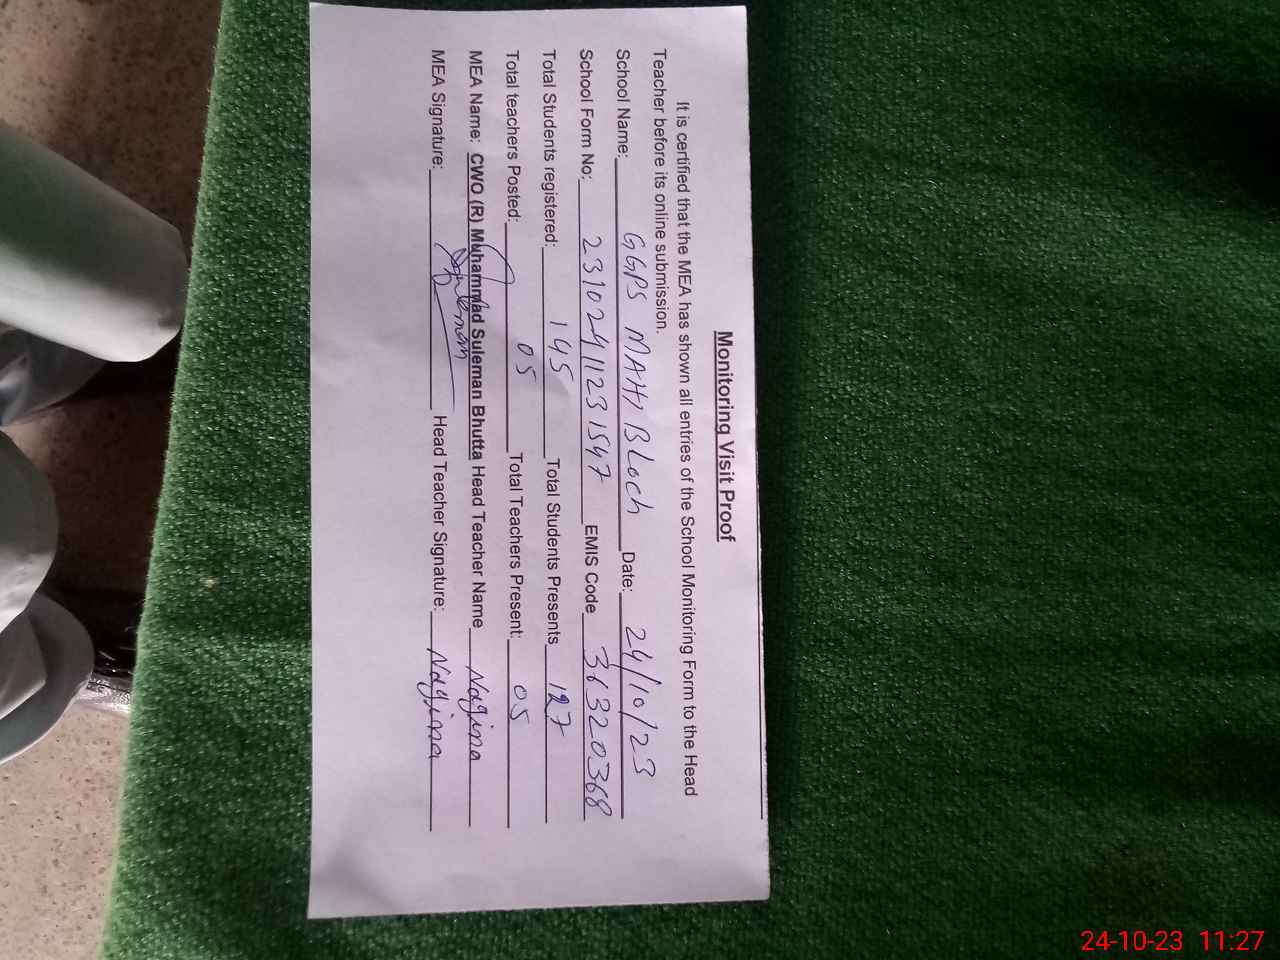 Monitoring Visit Proof
It is certified that the MEA has shown all entries of the School Monitoring Form to the Head
Teacher before its online submission.
School Name: GGPS MAHI Bloch Date: 24/10/23
School Form No: 23102411231547 EMIS Code 31320368
Total Students registered: 145 Total Students Presents 127
Total teachers Posted: 05 Total Teachers Present: 05
MEA Name: CWO (R) Muhammad Suleman Bhutta Head Teacher Name Nagina
MEA Signature: Suleman Head Teacher Signature: Nagina
24-10-23 11:27